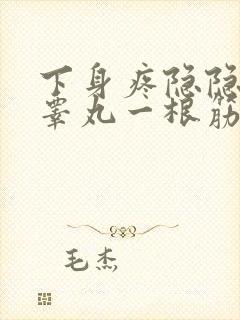 下身疼隐隐
睾丸一根筋
毛杰